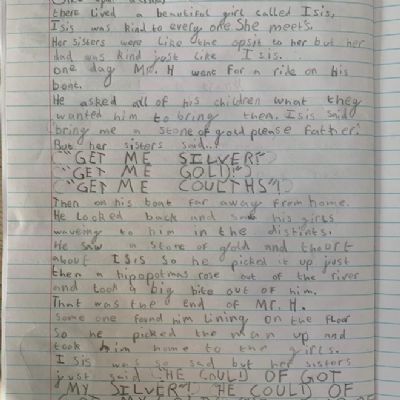 Once upon a time,
there lived a beautiful girl called Isis,
Isis was kind to every one She meets.
Her sisters were like the opsit to her but her
dad was kind just like Isis.
One day Mr. H went for a ride on his
boat.
He asked all of his children what they
wanted him to bring them. Isis said
bring me a stone of gold please father.
But her sisters said...
"GET ME SILVER"
"GET ME GOLD!"
"GET ME COULTHS"
Then on his boat far away from home.
He looked back and saw his girls
waveing to him in the distints.
He saw a stone of gold and thourt
about ISis so he picked it up just
then a hipopotmas rose out of the river
and took a big bite out of him.
That was the end of Mr. H.
Some one found him lining on the floor
So he picked the man up and
took him home to the girls.
Isis was sad but her sisters
just said "HE COULD OF GOT
MY SILVER"! "HE COULD OF